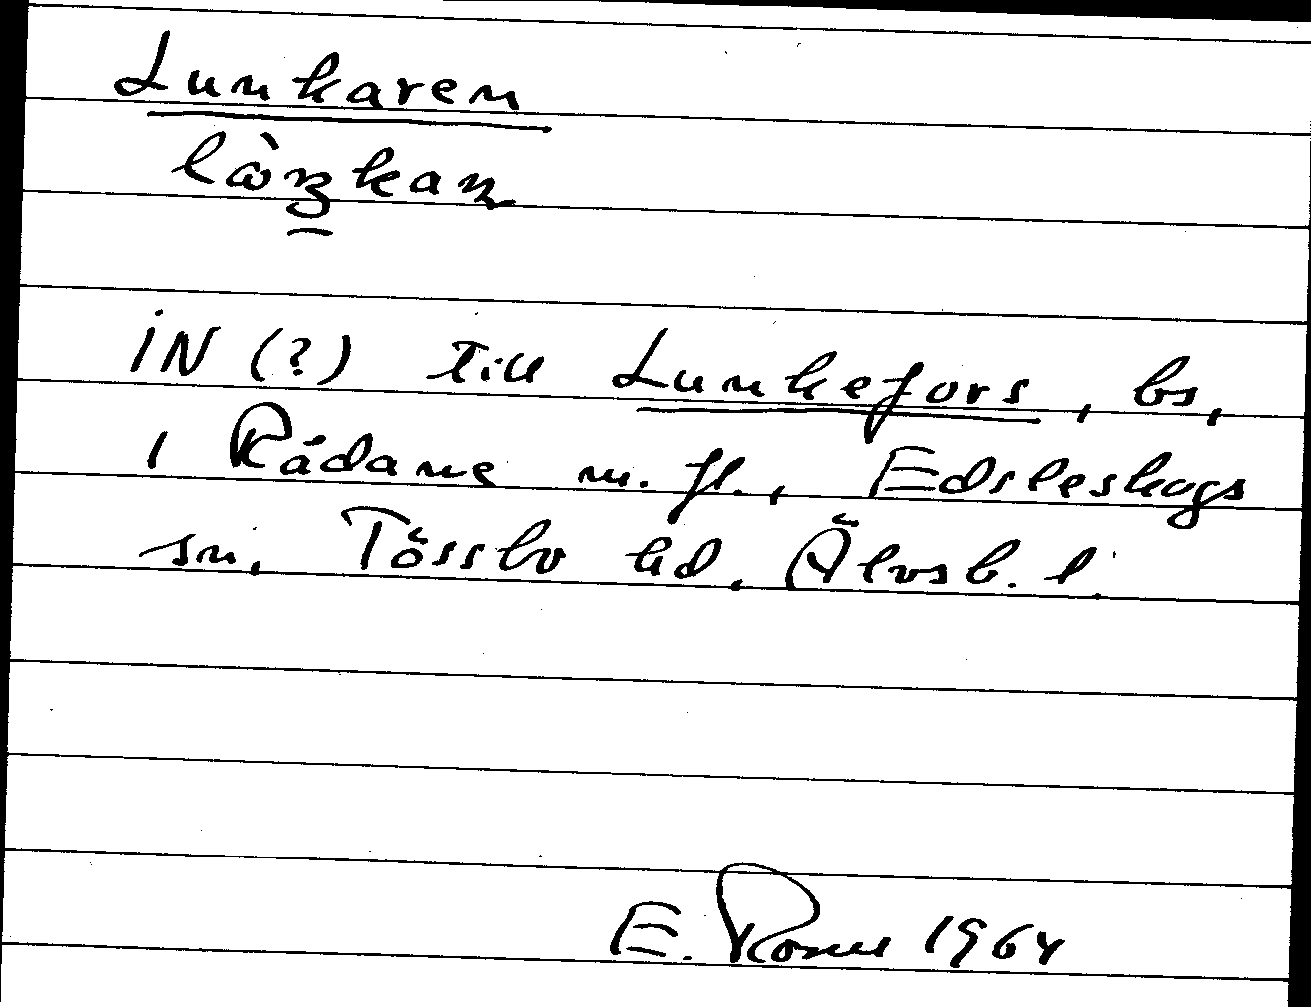 Lunkaren
i N (?) till Lunkefors, bs,
i Rådane m. fl., Edsleskogs
sn, Tössbo hd. Älvsb. l.
E. 1964